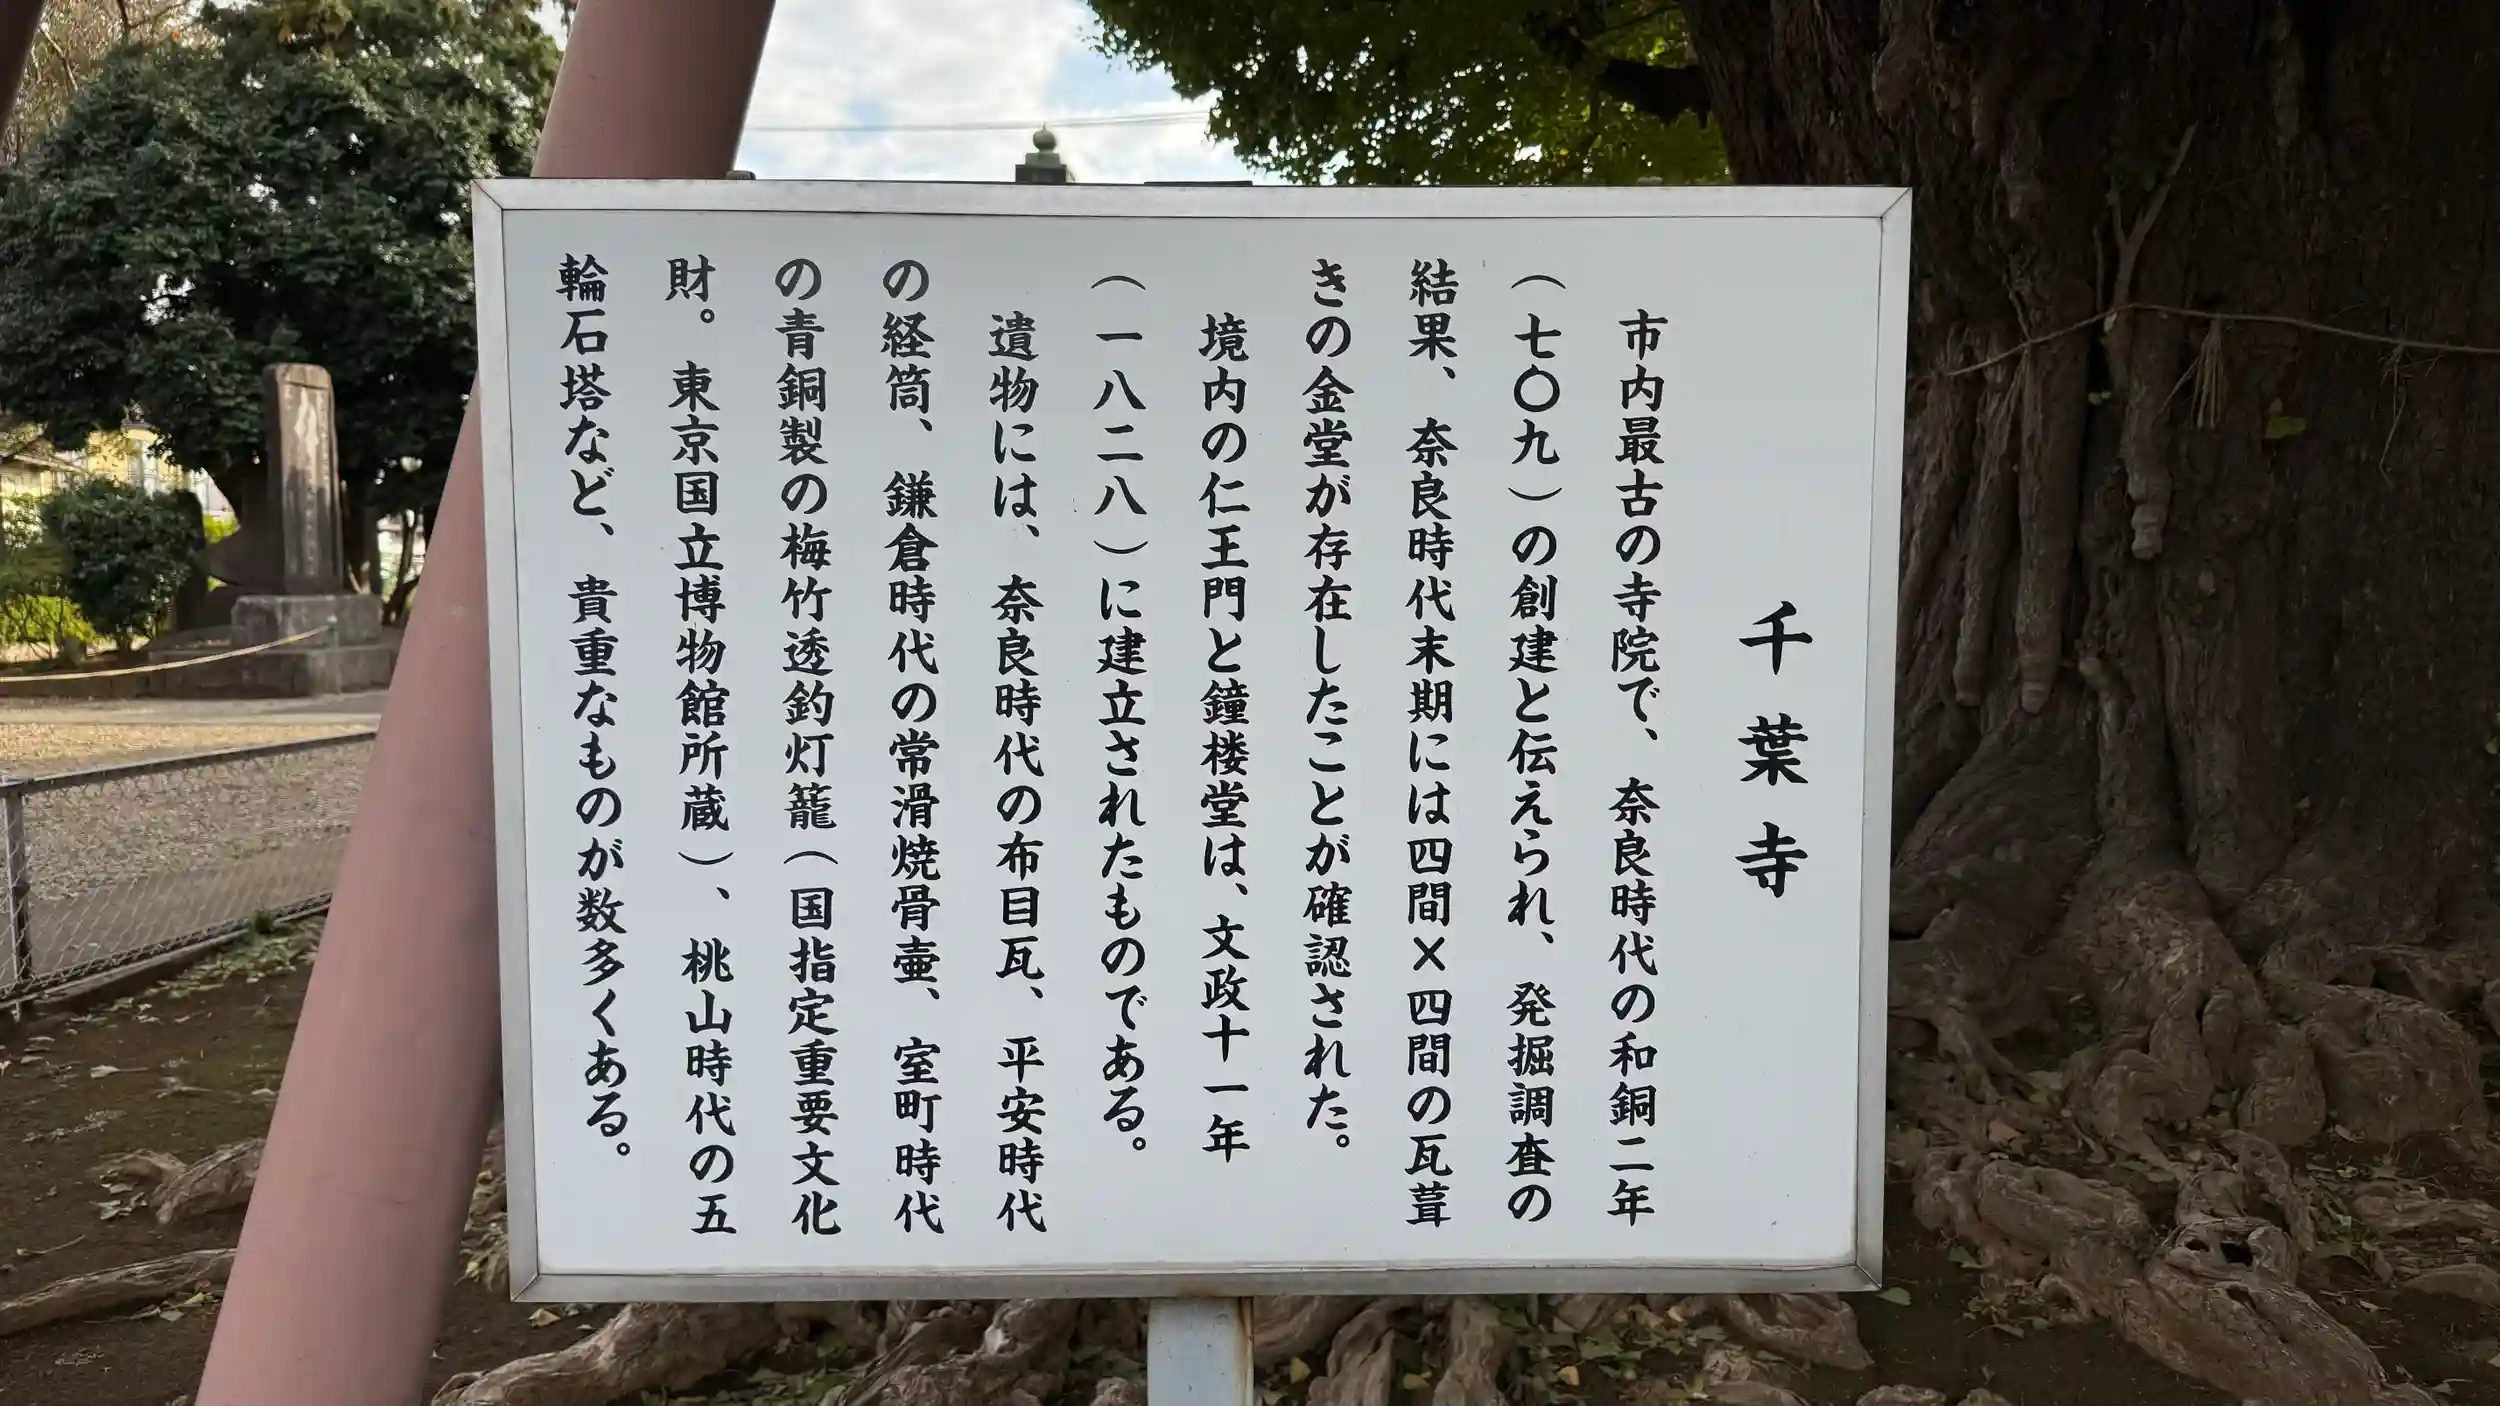 千葉寺
市内最古の寺院で、奈良時代の和銅二年
（七〇九）の創建と伝えられ、発掘調査の
結果、奈良時代末期には四間×四間の瓦葺
きの金堂が存在したことが確認された。
境内の仁王門と鐘楼堂は、文政十一年
（一八二八）に建立されたものである。
遺物には、奈良時代の布目瓦、平安時代
の経筒、鎌倉時代の常滑焼骨壷、室町時代
の青銅製の梅竹透釣灯籠（国指定重要文化
財。東京国立博物館所蔵）、桃山時代の五
輪石塔など、貴重なものが数多くある。